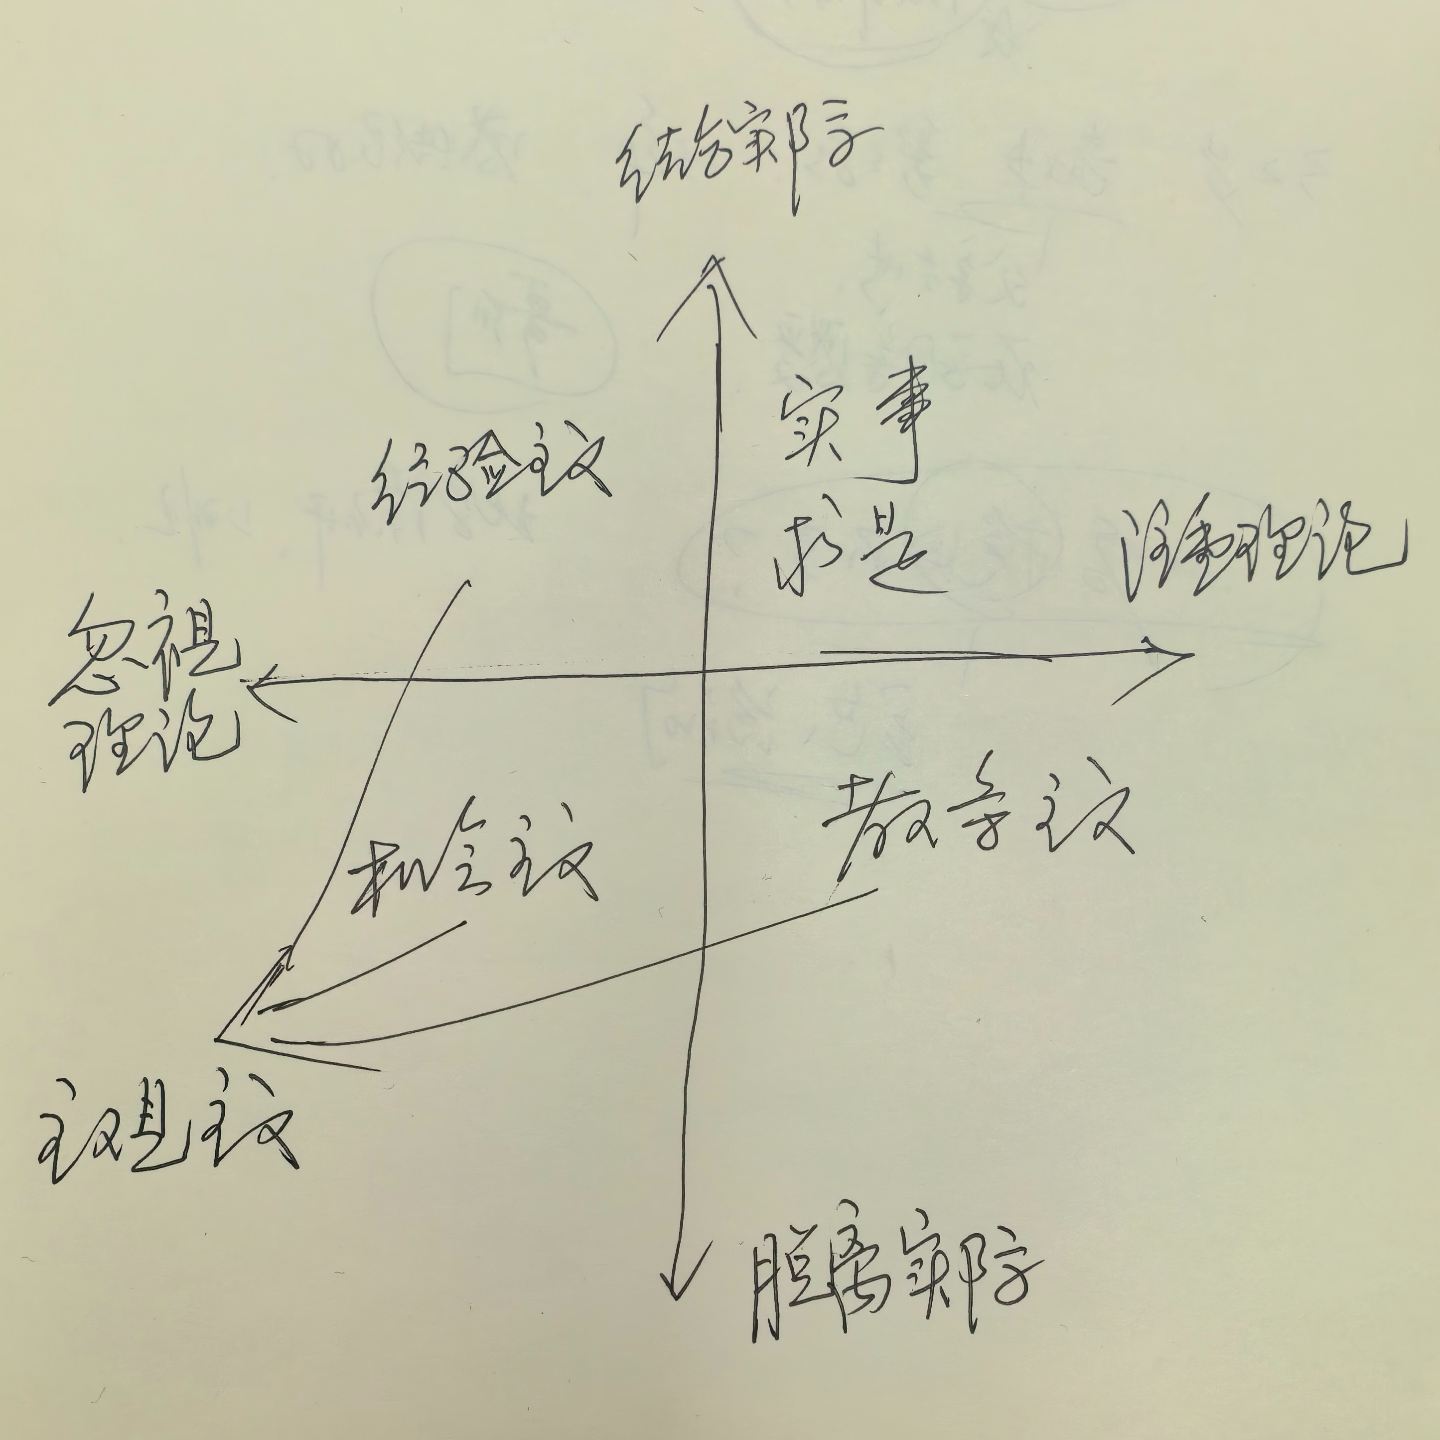 结合实际
实事
求是
经验主义
注重理论
忽视
理论
机会主义
教条主义
主观主义
脱离实际